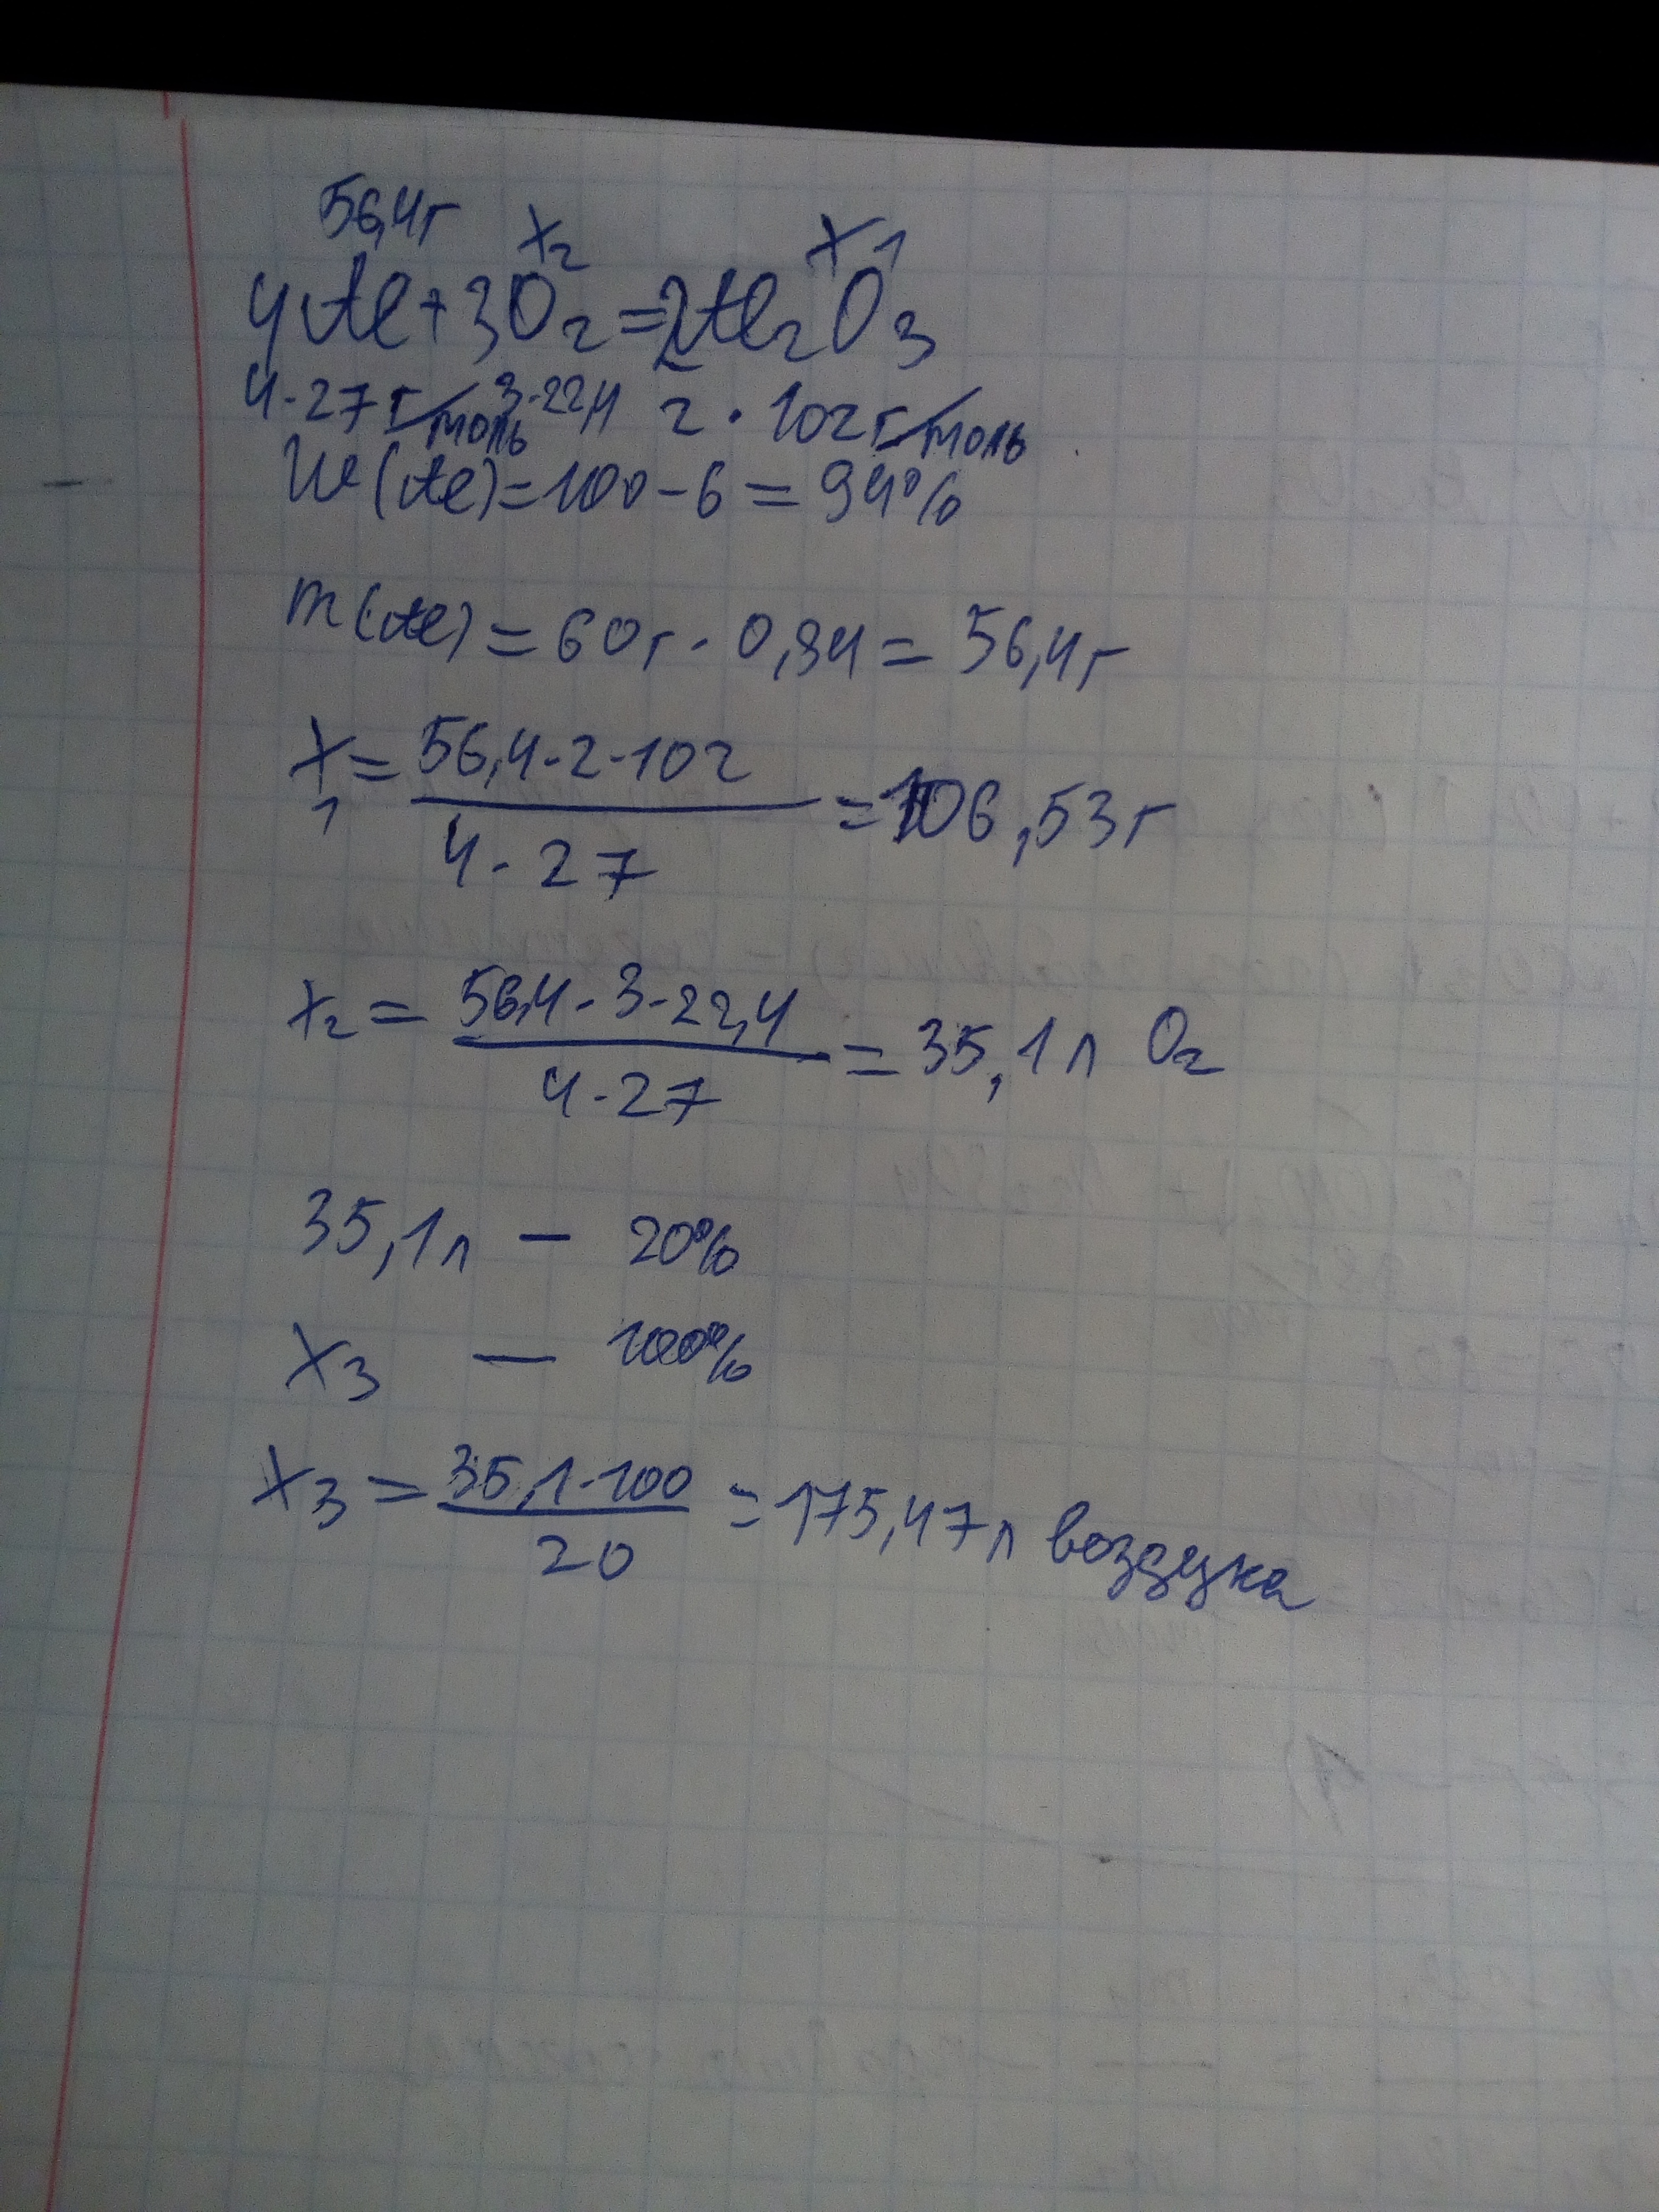 56,4г x₂ x₁
4Al + 3O₂ = 2Al₂O₃
4·27 г/моль 3·22,4 2·102 г/моль
W(Al) = 100 - 6 = 94%
m(Al) = 60г · 0,94 = 56,4г
x₁ = 56,4·2·102 / 4·27 = 106,53г
x₂ = 56,4·3·22,4 / 4·27 = 35,1л O₂
35,1л — 20%
x₃ — 100%
x₃ = 35,1·100 / 20 = 175,47л воздуха